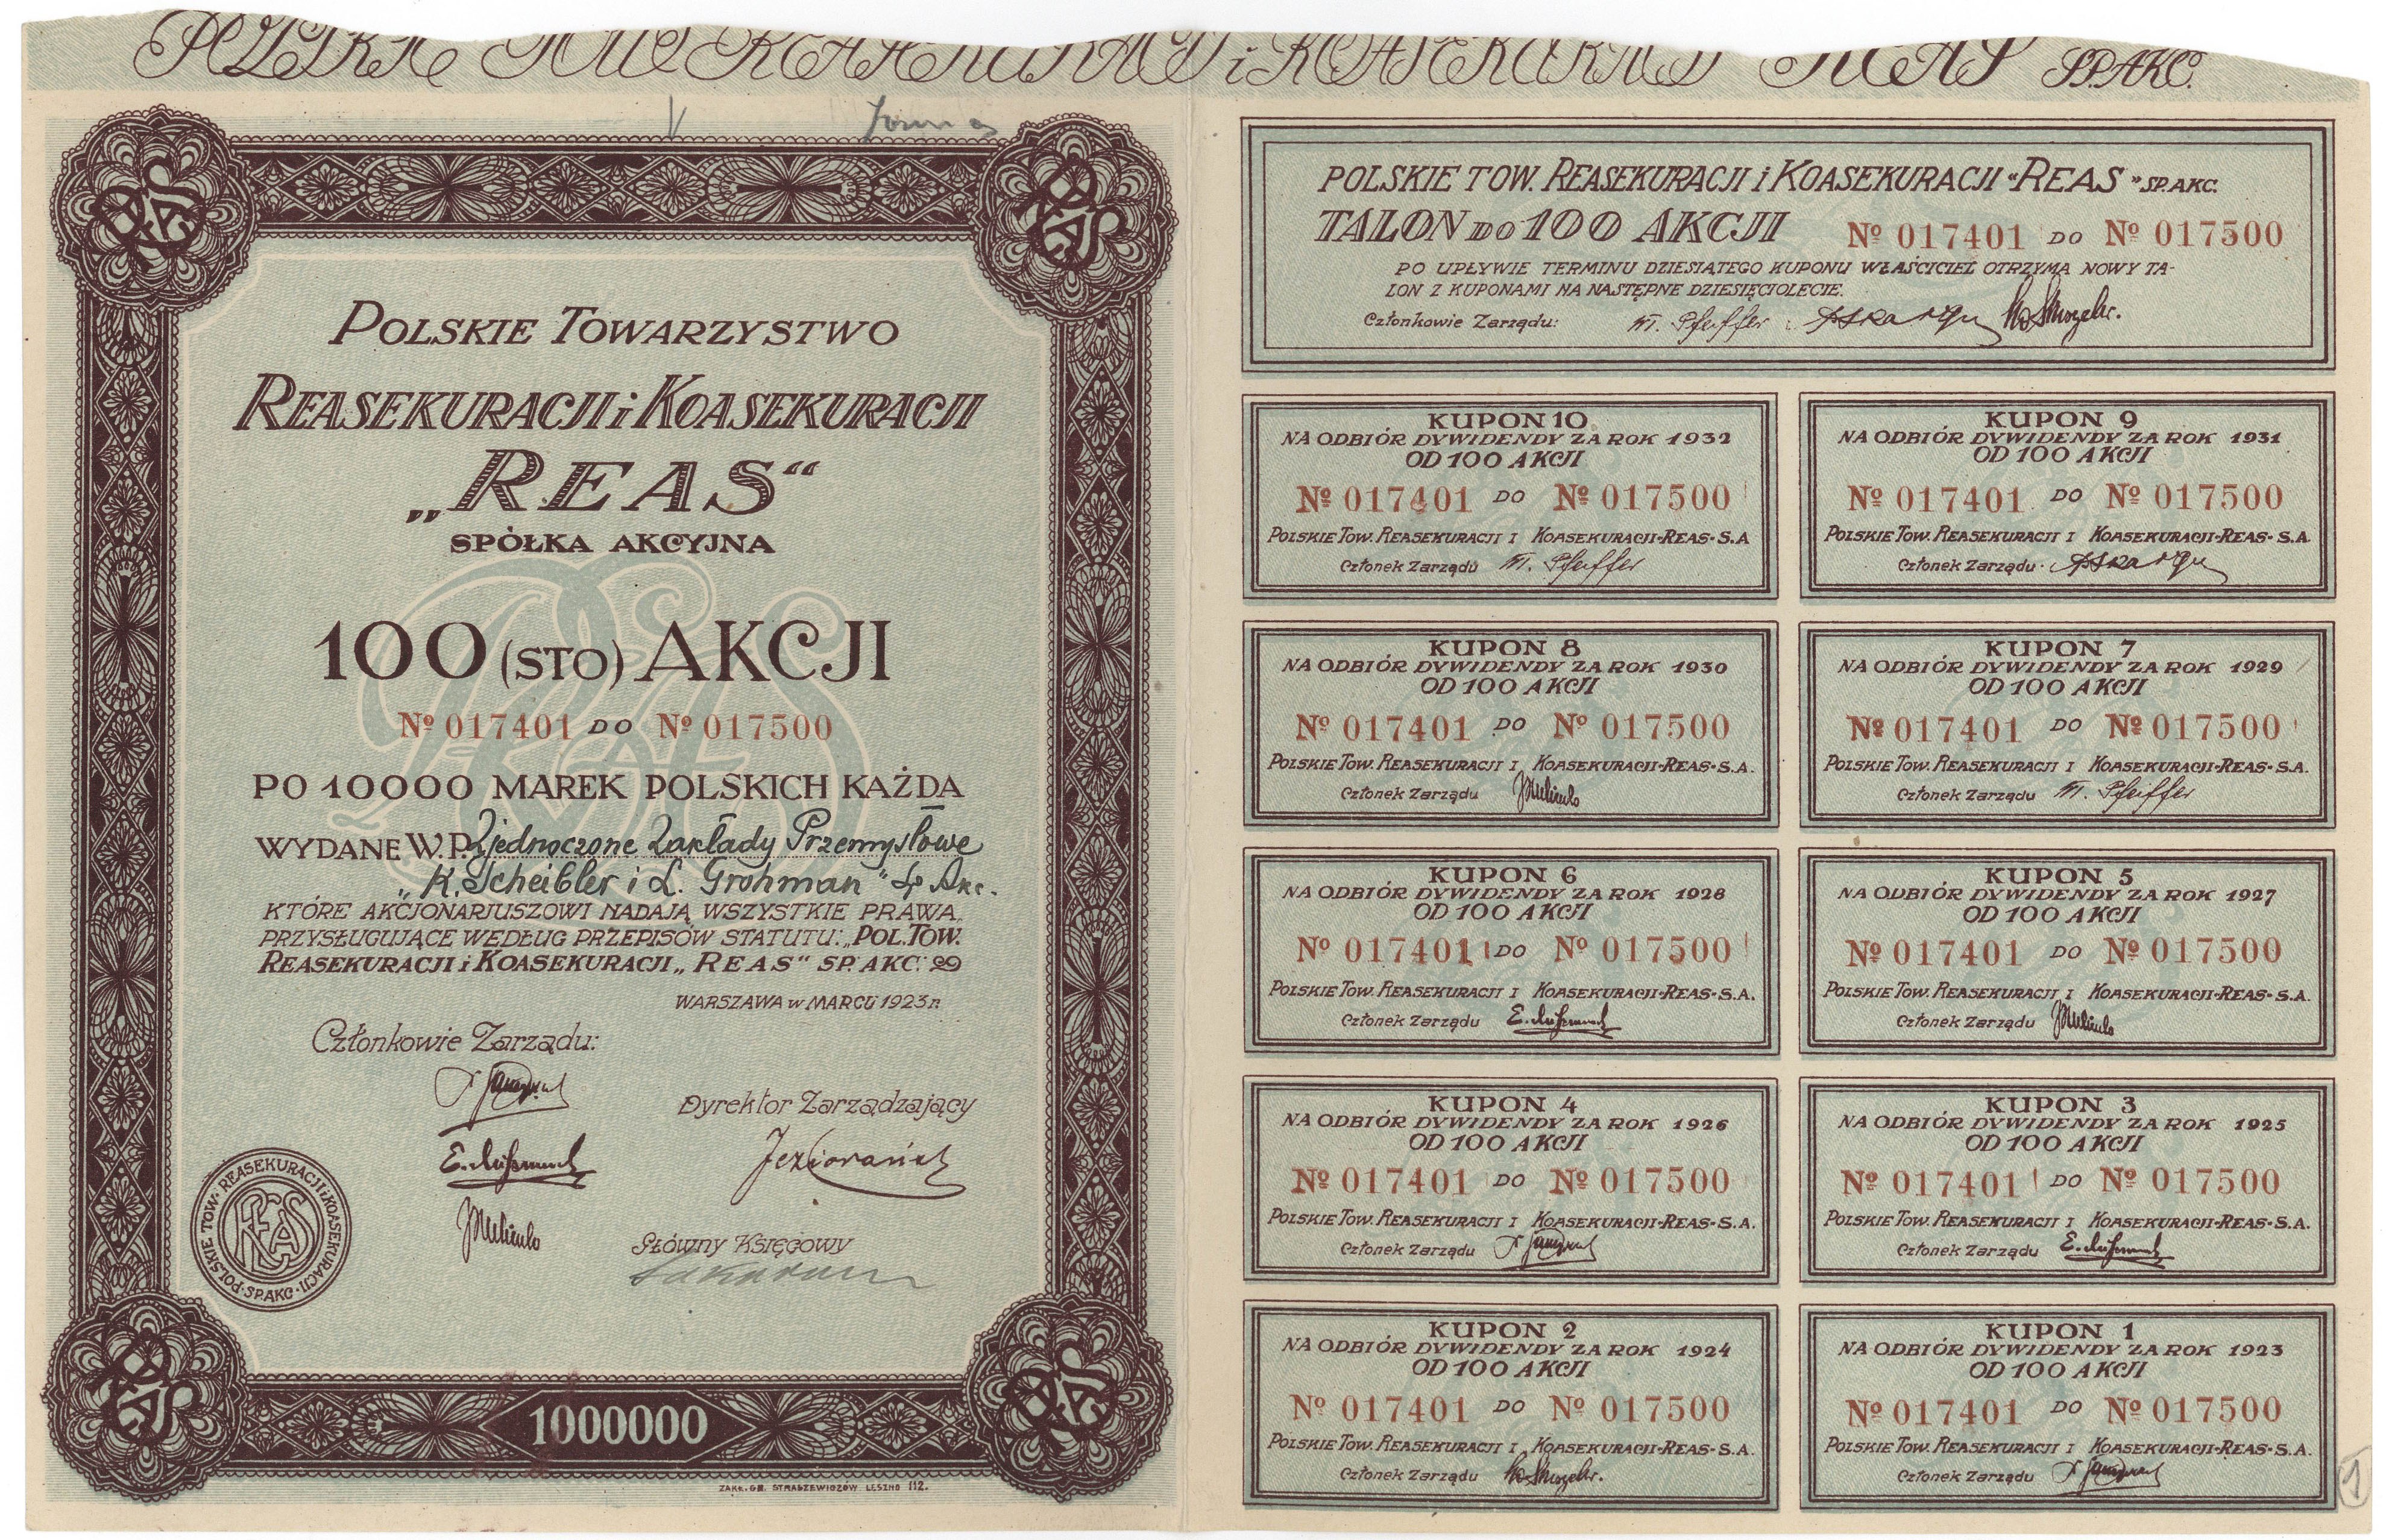 SP. AKC.
POLSKIE TOWARZYSTWO
REASEKURACJI i KOASEKURACJI
„REAS“
SPÓŁKA AKCYJNA
100 (STO) AKCJI
Nº 017401 DO Nº 017500
PO 10000 MAREK POLSKICH KAŻDA
WYDANE W.P. Zjednoczone Zakłady Przemysłowe
„K. Scheibler i L. Grohman" Sp Akc.
KTÓRE AKCJONARJUSZOWI NADAJĄ WSZYSTKIE PRAWA,
PRZYSŁUGUJĄCE WEDŁUG PRZEPISÓW STATUTU: „POL. TOW.
REASEKURACJI i KOASEKURACJI „REAS“ SP. AKC.
WARSZAWA w MARCU 1923 r.
Członkowie Zarządu:
Dyrektor Zarządzający
Jeziorański
Główny Księgowy
POLSKIE TOW. REASEKURACJI i KOASEKURACJI SP. AKC.
REAS
1000000
ZAKŁ. GR. STRASZEWICZÓW LESZNO 112.
POLSKIE TOW. REASEKURACJI i KOASEKURACJI «REAS» SP. AKC.
TALON DO 100 AKCJI Nº 017401 DO Nº 017500
PO UPŁYWIE TERMINU DZIESIĄTEGO KUPONU WŁAŚCICIEL OTRZYMA NOWY TA-
LON Z KUPONAMI NA NASTĘPNE DZIESIĘCIOLECIE.
Członkowie Zarządu: Pfeiffer
KUPON 10
NA ODBIÓR DYWIDENDY ZA ROK 1932
OD 100 AKCJI
Nº 017401 DO Nº 017500
POLSKIE TOW. REASEKURACJI I KOASEKURACJI-REAS-S.A
Członek Zarządu Pfeiffer
KUPON 9
NA ODBIÓR DYWIDENDY ZA ROK 1931
OD 100 AKCJI
Nº 017401 DO Nº 017500
POLSKIE TOW. REASEKURACJI I KOASEKURACJI-REAS-S.A.
Członek Zarządu
KUPON 8
NA ODBIÓR DYWIDENDY ZA ROK 1930
OD 100 AKCJI
Nº 017401 DO Nº 017500
POLSKIE TOW. REASEKURACJI I KOASEKURACJI-REAS-S.A.
Członek Zarządu
KUPON 7
NA ODBIÓR DYWIDENDY ZA ROK 1929
OD 100 AKCJI
Nº 017401 DO Nº 017500
POLSKIE TOW. REASEKURACJI I KOASEKURACJI-REAS-S.A.
Członek Zarządu Pfeiffer
KUPON 6
NA ODBIÓR DYWIDENDY ZA ROK 1928
OD 100 AKCJI
Nº 017401 DO Nº 017500
POLSKIE TOW. REASEKURACJI I KOASEKURACJI-REAS-S.A.
Członek Zarządu
KUPON 5
NA ODBIÓR DYWIDENDY ZA ROK 1927
OD 100 AKCJI
Nº 017401 DO Nº 017500
POLSKIE TOW. REASEKURACJI I KOASEKURACJI-REAS-S.A.
Członek Zarządu
KUPON 4
NA ODBIÓR DYWIDENDY ZA ROK 1926
OD 100 AKCJI
Nº 017401 DO Nº 017500
POLSKIE TOW. REASEKURACJI I KOASEKURACJI-REAS-S.A.
Członek Zarządu
KUPON 3
NA ODBIÓR DYWIDENDY ZA ROK 1925
OD 100 AKCJI
Nº 017401 DO Nº 017500
POLSKIE TOW. REASEKURACJI I KOASEKURACJI-REAS-S.A.
Członek Zarządu
KUPON 2
NA ODBIÓR DYWIDENDY ZA ROK 1924
OD 100 AKCJI
Nº 017401 DO Nº 017500
POLSKIE TOW. REASEKURACJI I KOASEKURACJI-REAS-S.A.
Członek Zarządu
KUPON 1
NA ODBIÓR DYWIDENDY ZA ROK 1923
OD 100 AKCJI
Nº 017401 DO Nº 017500
POLSKIE TOW. REASEKURACJI I KOASEKURACJI-REAS-S.A.
Członek Zarządu
1